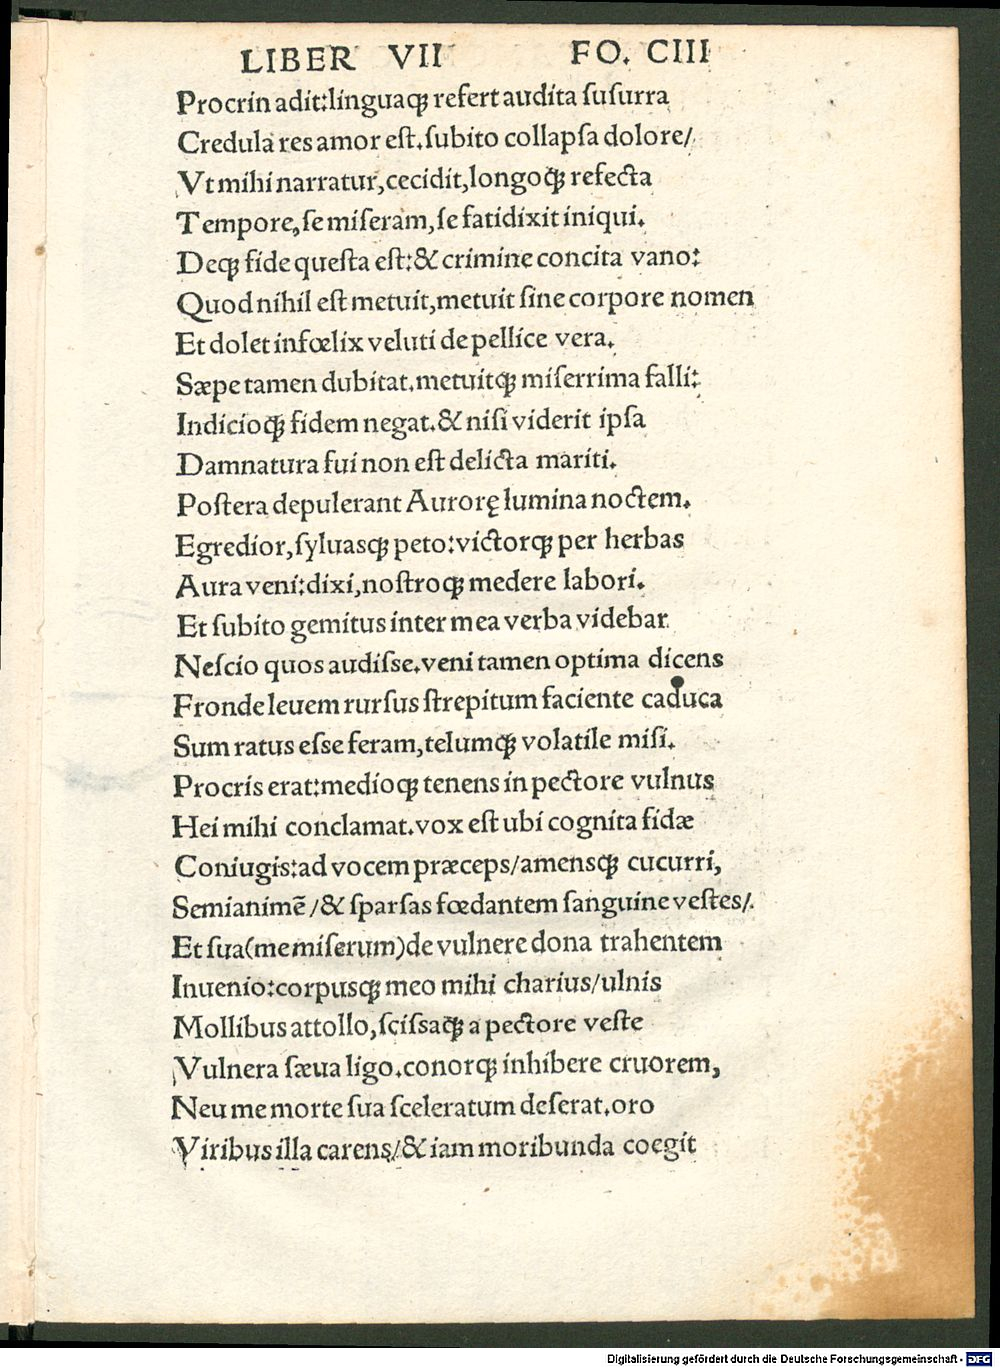 LIBER VII FO. CIII
Procrin adit:linguaqꝫ refert audita ſuſurra
Credula res amor eſt.ſubito collapſa dolore/
Vt mihi narratur,cecidit,longoqꝫ refecta
Tempore,ſe miſeram,ſe fati dixit iniqui.
Deqꝫ fide queſta eſt:& crimine concita vano:
Quod nihil eſt metuit,metuit ſine corpore nomen
Et dolet infœlix veluti de pellice vera.
Sæpe tamen dubitat.metuitqꝫ miſerrima falli:
Indicioqꝫ fidem negat.& niſi viderit ipſa
Damnatura fui non eſt delicta mariti.
Poſtera depulerant Aurorę lumina noctem.
Egredior,ſyluasqꝫ peto:victorqꝫ per herbas
Aura veni:dixi,noſtroqꝫ medere labori.
Et ſubito gemitus inter mea verba videbar
Neſcio quos audiſſe.veni tamen optima dicens
Fronde leuem rurſus ſtrepitum faciente caduca
Sum ratus eſſe feram,telumqꝫ volatile miſi.
Procris erat:medioqꝫ tenens in pectore vulnus
Hei mihi conclamat.vox eſt ubi cognita fidæ
Coniugis:ad vocem præceps/amensqꝫ cucurri,
Semianimē/& ſparſas fœdantem ſanguine veſtes/.
Et ſua(me miſerum)de vulnere dona trahentem
Inuenio:corpusqꝫ meo mihi charius/ulnis
Mollibus attollo,ſciſſaqꝫ a pectore veſte
Vulnera ſæua ligo.conorqꝫ inhibere cruorem,
Neu me morte ſua ſceleratum deſerat.oro
Viribus illa carens/& iam moribunda coegit
Digitalisierung gefördert durch die Deutsche Forschungsgemeinschaft - DFG